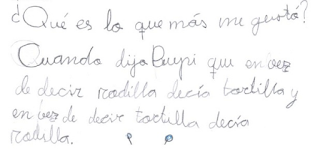 ¿Qué es lo que más me gustó?
Cuando dijo Puypi que en vez
de decir rodilla decía tortilla y
en vez de decir tortilla decía
rodilla.